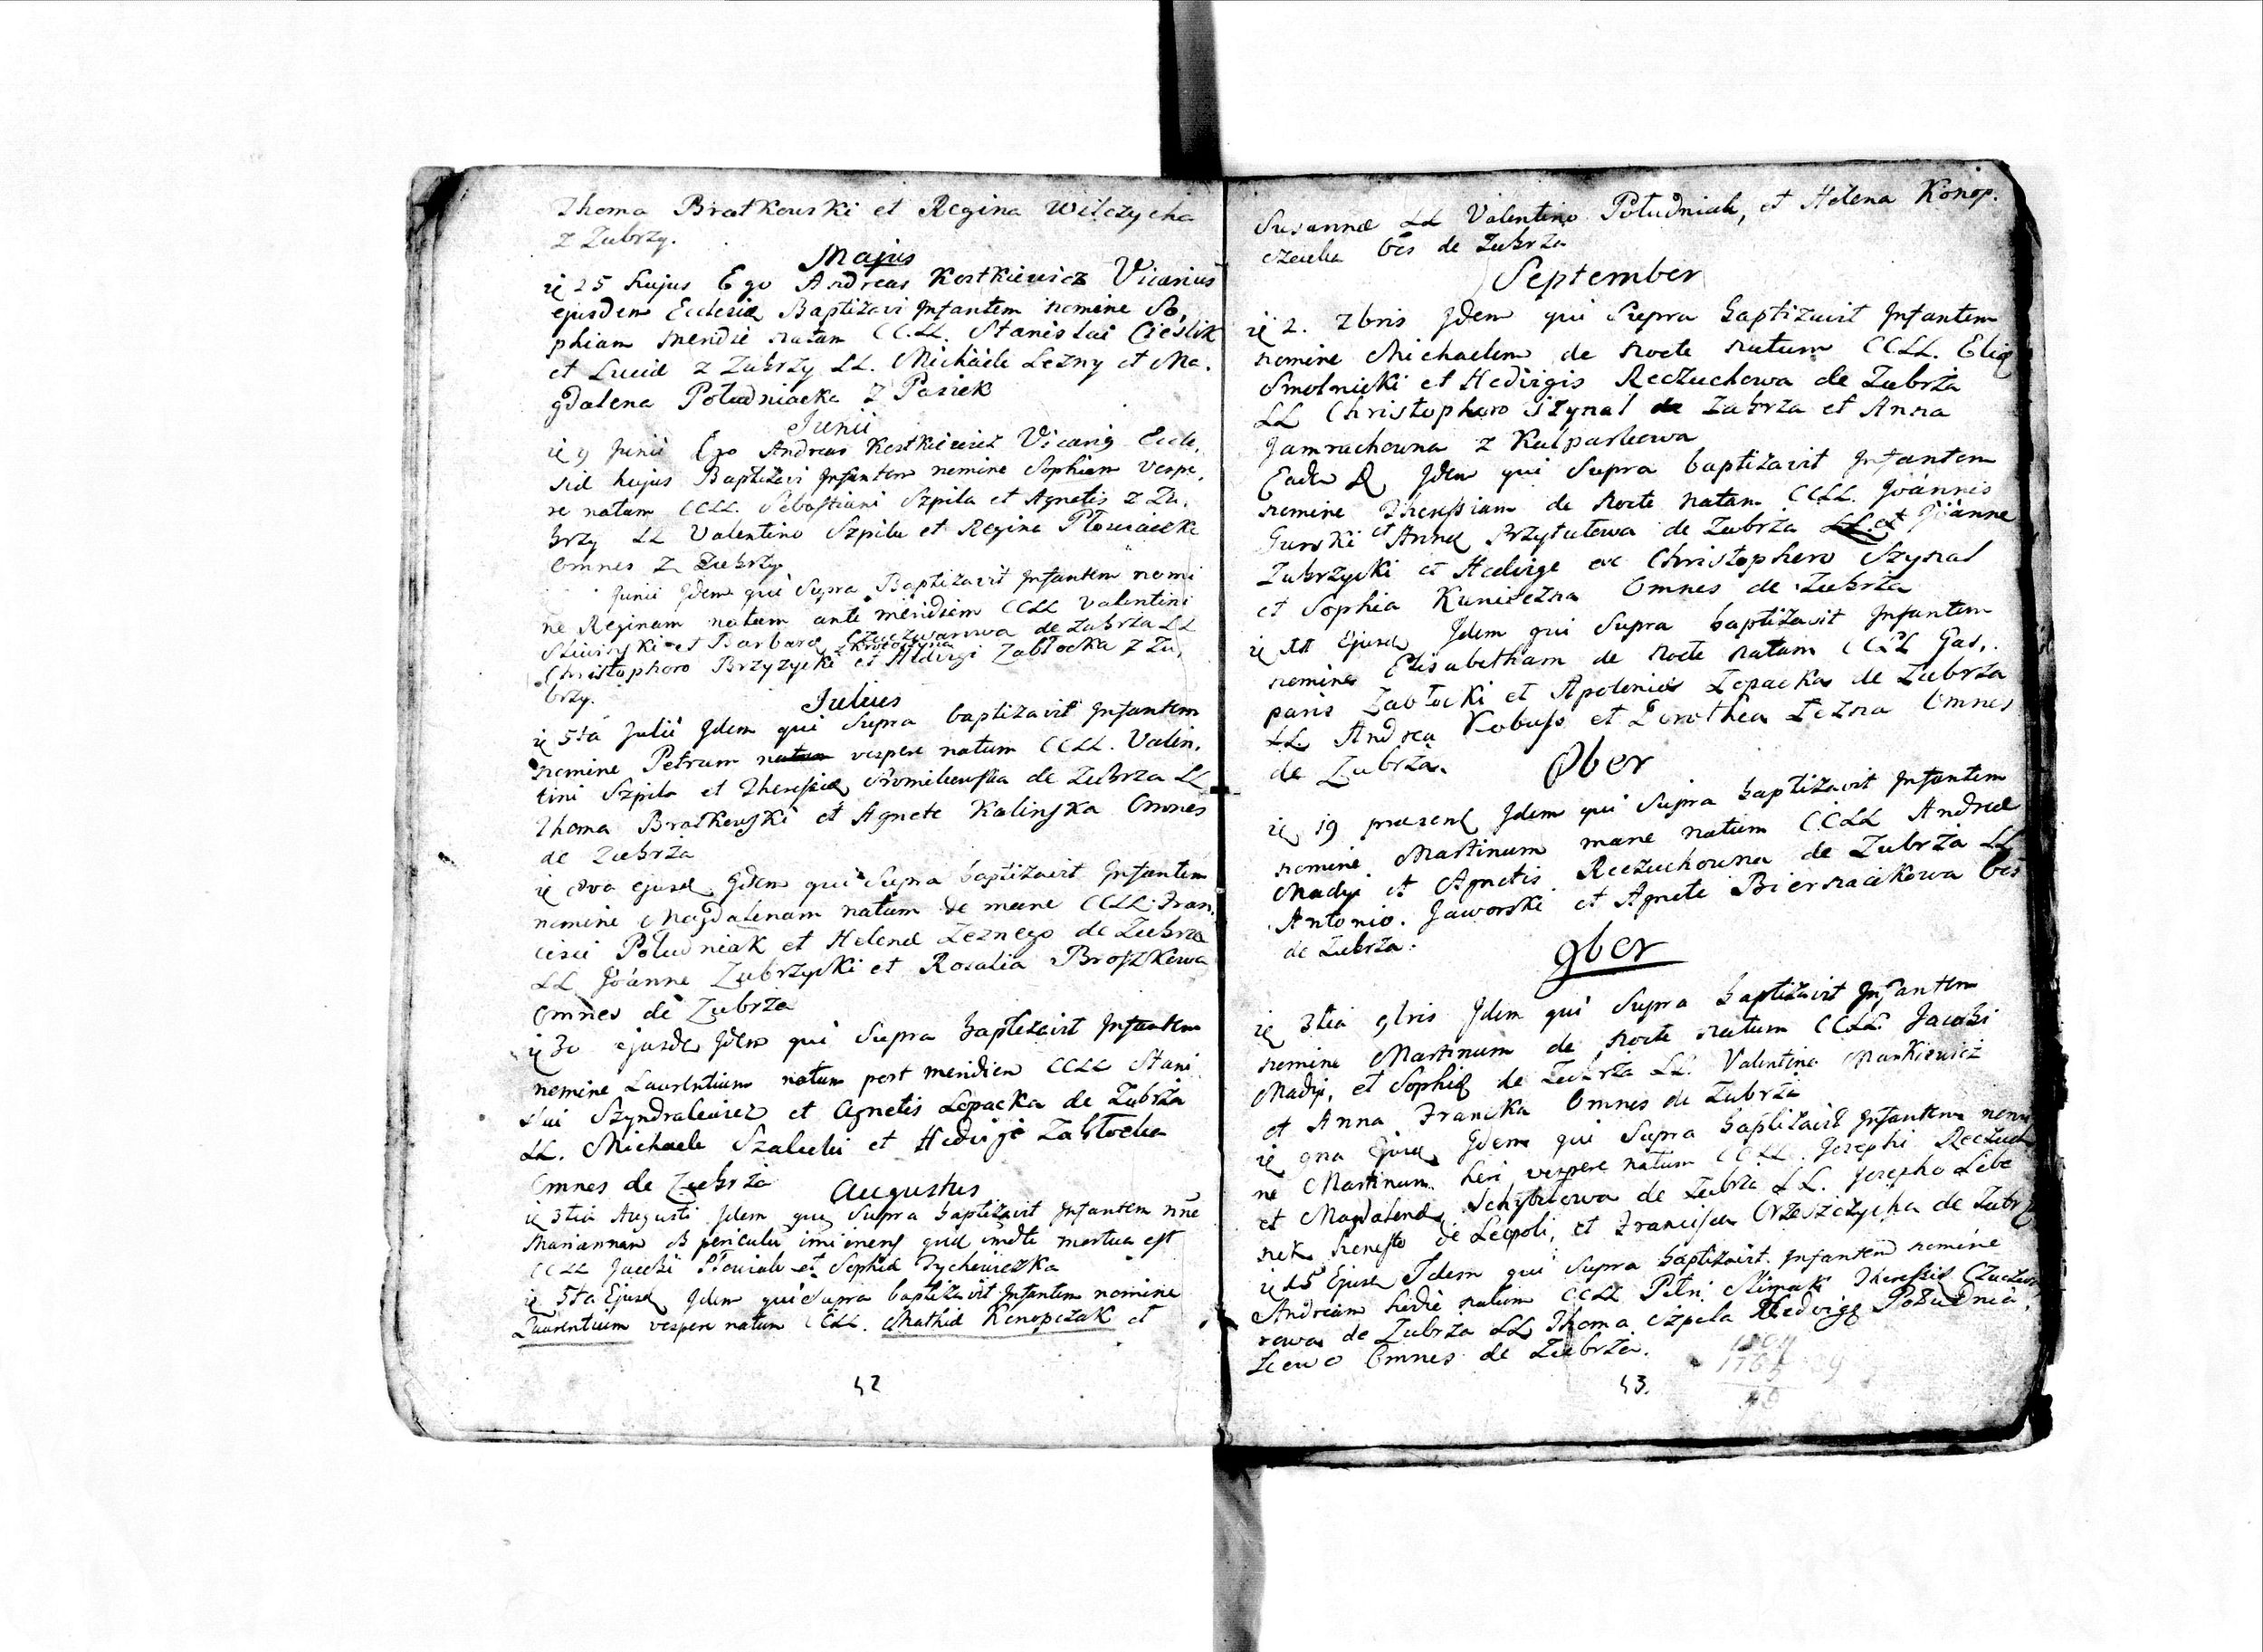 Thoma Bratkowski et Regina Wilczycha
z Zubrzy.
Majus
ie 25 hujus Ego Andreas Kostkiewicz Vicarius
ejusdem Ecclesiæ Baptizavi Infantem nomine So,
phiam meridie natam CC.LL. Stanislai Cieślik
et Luciæ z Zubrzy LL. Michaele Lezny et Ma.
gdalena Południacka z Pasiek
Junii
ie 9 Junii Ego Andreas Kostkiewicz Vicariq Eccle,
siæ hujus Baptizavi Infantem nomine Sophiam vespe,
re natam CCLL. Sebastiani Szpila et Agnetis z Zu,
brzy LL Valentino Szpila et Regina Płowiacka
Omnes z Zubrzy.
Junii Idem qui Supra Baptizavit Infantem nomi
ne Reginam natam ante meridiem CCLL Valentini
et Barbara de Zubrza LL
Christophoro Brzyzycki et Hedvigi Zabłocka z Zu,
brzy.
Julius
ie 5ta Julii Idem qui Supra baptizavit Infantem
nomine Petrum natum vespere natum CCLL. Valen,
tini Szpila et Theressiæ de Zubrza LL
Thoma Bratkowski et Agnete Kalinska Omnes
de Zubrza
ie 8va ejusd Idem qui Supra baptizavit Infantem
nomine Magdalenam natam de mane CCLL. Fran,
cisci Południak et Helenæ Leznego de Zubrza
LL Joánne Zubrzycki et Rosalia Broszkowa
Omnes de Zubrza
ie 30 ejusde Idem qui Supra baptizavit Infantem
nomine Laurentium natum post meridiem CCLL Stani
slai Szyndralewicz et Agnetis Lopacka de Zubrża
LL. Michaele Szalecki et Hedvige Zabłocka
Omnes de Zubrża
Augustus
ie 3tia Augusti Idem qui Supra baptizavit Infantem nne
Mariannam periculu mortua est
CCLL Jacobi Płowiak et Sophiæ Tychewiczka
ie 5ta Ejusd Idem qui Supra baptizavit Infantem nomine
Laurentium vespere natum CCLL. Mathiæ Konopczak et
42
Susannæ LL Valentino Południak, et Helena Konop.
czacka Oēs de Zubrza
September
ie 2. 7bris Idem qui Supra baptizavit Infantem
nomine Michaelem de nocte natum CCLL. Eliæ
Smolnicki et Hedvigis Reczuchowa de Zubrża
LL Christophoro Szynal de Zubrza et Anna
Jamrachowna z Kulparkowa
Eade D Idem qui Supra baptizavit Infantem
nomine Theressiam de Nocte natam CCLL. Joánnis
Gurski et Annæ Przytułowa de Zubrża LL. et Joánne
Zubrzycki et Hedvige ac Christophero Szynal
et Sophia Kunieczna Omnes de Zubrża
ie 11 Ejusd Idem qui Supra baptizavit Infantem
nomine Elisabetham de nocte natam CCLL Gas,
paris Zabłocki et Apoloniæ Lopacka de Zubrza
LL. Andrea Kobuss et Dorothea Lezna Omnes
de Zubrża.
8ber
ie 19 præsent Idem qui Supra baptizavit Infantem
nomine Martinum mane natum CCLL Andreæ
Madyi et Agnetis Reczuchowna de Zubrża LL
Antonio. Jaworski et Agnete Biernacikowa Oēs
de Zubrza.
9ber
ie 3tia 9bris Idem qui Supra baptizavit Infantem
nomine Martinum de nocte natum CCLL Jacobi
Madyi, et Sophiæ de Zubrża LL. Valentino Mankiewicz
et Anna Francka Omnes de Zubrża
ie 9na Ejusd Idem qui Supra baptizavit Infantem nomi
ne Martinum heri vespere natum CCLL. Josephi Reczuch
et Magdalenæ Schybełowa de Zubrża LL. Josepho Lebe
nek de Leopoli, et Francisca Orzeszczycha de Zubrz
ie 15 Ejusd Idem qui Supra baptizavit Infantem nomine
Andream hodie natum CCLL Petri Klimak Theressiæ
rowa de Zubrża LL Thoma Szpila Hedvige Południa,
Omnes de Zubrża.
43.